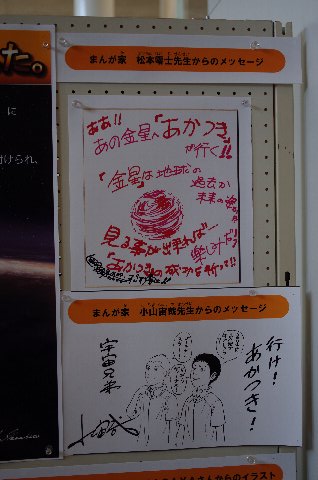 た。
に
付けられ、
まんが家 松本零士先生からのメッセージ
ああ!!
あの金星へ「あかつき」
が行く!!
「金星」は地球の
過去か
未来の姿か
見る事が出来れば…
楽しみだ!!
「あかつき」の成功を祈って!!
まんが家 小山宙哉先生からのメッセージ
行け!
あかつき!
宇宙兄弟
さんからのイラスト